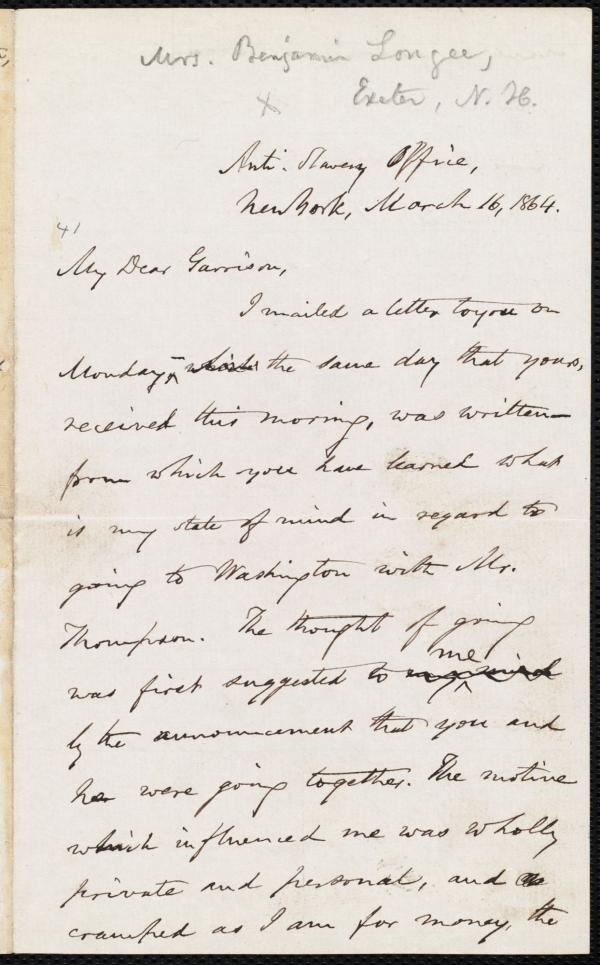 Mrs. Benjamin Longee,
x Exeter, N. H.
Anti-Slavery Office,
New York, March 16, 1864.
41
My Dear Garrison,
I mailed a letter to you on
Monday,– the same day that yours,
received this moring, was written–
from which you have learned what
is my state of mind in regard to
going to Washington with Mr.
Thompson. The thought of going
was first suggested to my mind me
by the announcement that you and
he were going together. The motive
which influenced me was wholly
private and personal, and
cramped as I am for money, the